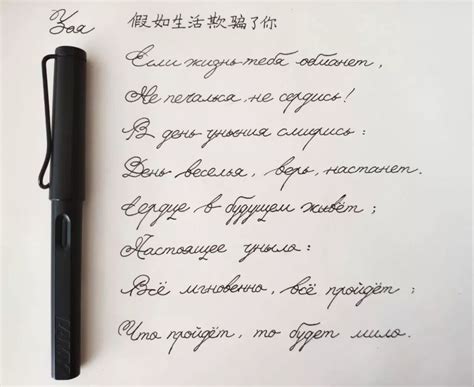 Зоя 假如生活欺骗了你
Если жизнь тебя обманет,
Не печалься, не сердись!
В день уныния смирись:
День веселья, верь, настанет.
Сердце в будущем живёт;
Настоящее уныло:
Всё мгновенно, всё пройдёт;
Что пройдёт, то будет мило.
LAMY